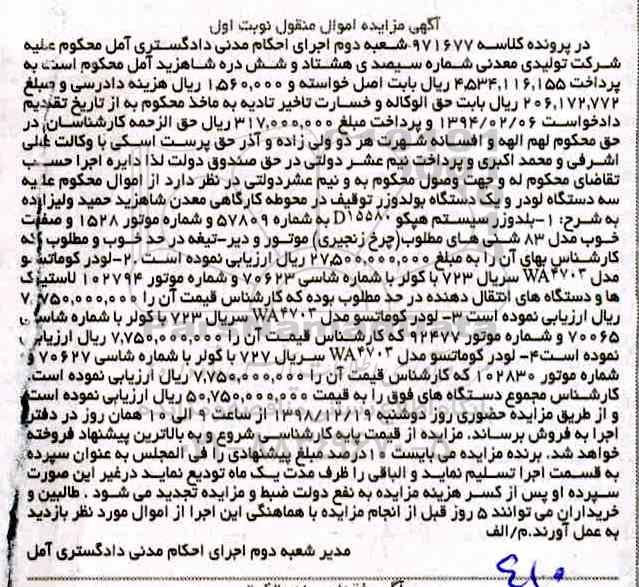 آگهی مزایده اموال منقول نوبت اول
در پرونده کلاسه ۹۷۱۶۷۷ شعبه دوم اجرای احکام مدنی دادگستری آمل محکوم علیه
شرکت تولیدی معدنی شماره سیصد ی هشتاد و شش دره شاهزید آمل محکوم است به
پرداخت ۴,۵۳۴,۱۱۶,۱۵۵ ریال بابت اصل خواسته و ۱,۵۶۰,۰۰۰ ریال هزینه دادرسی و مبلغ
۲۰۶,۱۷۲,۷۷۲ ریال بابت حق الوکاله و خسارت تاخیر تادیه به ماخذ محکوم به از تاریخ تقدیم
دادخواست ۱۳۹۴/۰۲/۰۶ و پرداخت مبلغ ۳۱۷,۰۰۰,۰۰۰ ریال حق الزحمه کارشناسان, در
حق محکوم لهم الهه و افسانه شهرت هر دو ولی زاده و آذر حق پرست اسکی با وکالت علی
اشرفی و محمد اکبری و پرداخت نیم عشر دولتی در حق صندوق دولت لذا دایره اجرا حسب
تقاضای محکوم له و جهت وصول محکوم به و نیم عشردولتی در نظر دارد از اموال محکوم علیه
سه دستگاه لودر و یک دستگاه بولدوزر توقیف در محوطه کارگاهی معدن شاهزید حمید ولیزاده
به شرح: ۱-بلدوزر سیستم هپکو D۱۵۵۸۰ به شماره ۵۷۸۰۹ و شماره موتور ۱۵۲۸ و صفت
خوب مدل ۸۳ شنی های مطلوب(چرخ زنجیری) موتور و دیر-تیغه در حد خوب و مطلوب که
کارشناس بهای آن را به مبلغ ۲۷,۵۰۰,۰۰۰,۰۰۰ ریال ارزیابی نموده است .۲-لودر کوماتسو
مدل WA۴۷۰۳ سریال ۷۲۳ با کولر با شماره شاسی ۷۰۶۲۳ و شماره موتور ۱۰۲۷۹۴ لاستیک
ها و دستگاه های انتقال دهنده در حد مطلوب بوده که کارشناس قیمت آن را ۷,۷۵۰,۰۰۰,۰۰۰
ریال ارزیابی نموده است ۳- لودر کوماتسو مدل WA۴۷۰۳ سریال ۷۲۳ با کولر با شماره شاسی
۷۰۰۶۵ و شماره موتور ۹۲۴۷۷ که کارشناس قیمت آن را ۷,۷۵۰,۰۰۰,۰۰۰ ریال ارزیابی
نموده است۴- لودر کوماتسو مدل WA۴۷۰۳ سریال ۷۲۷ با کولر با شماره شاسی ۷۰۶۲۷ و
شماره موتور ۱۰۲۸۳۰ که کارشناس قیمت آن را ۷,۷۵۰,۰۰۰,۰۰۰ ریال ارزیابی نموده است.
کارشناس مجموع دستگاه های فوق را به قیمت ۵۰,۷۵۰,۰۰۰,۰۰۰ ریال ارزیابی نموده است
و از طریق مزایده حضوری روز دوشنبه ۱۳۹۸/۱۲/۱۹ از ساعت ۹ الی ۱۰ همان روز در دفتر
اجرا به فروش برساند. مزایده از قیمت پایه کارشناسی شروع و به بالاترین پیشنهاد فروخته
خواهد شد. برنده مزایده می بایست ۱۰درصد مبلغ پیشنهادی را فی المجلس به عنوان سپرده
به قسمت اجرا تسلیم نماید و الباقی را ظرف مدت یک ماه تودیع نماید درغیر این صورت
سپرده او پس از کسر هزینه مزایده به نفع دولت ضبط و مزایده تجدید می شود . طالبین و
خریداران می توانند ۵ روز قبل از انجام مزایده با هماهنگی این اجرا از اموال مورد نظر بازدید
به عمل آورند.م/الف
مدیر شعبه دوم اجرای احکام مدنی دادگستری آمل